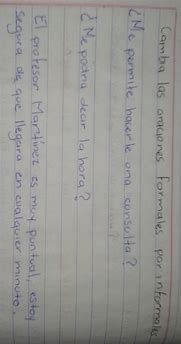 Cambia las oraciones formales por informales
¿Me permite hacerle una consulta?
¿Me podria decir la hora?
El profesor Martinez es muy puntual, estoy
segura de que llegara en cualquier minuto.